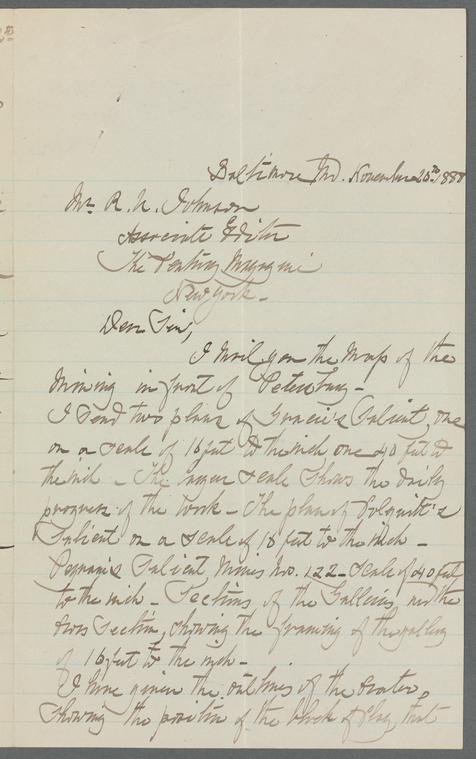 Baltimore Md. November 20th 1888
Mr. R. U. Johnson
Associate Editor
The Century Magazine
New York -
Dear Sir,
I mail you the map of the
Mining in front of Petersburg -
I send two plans of Gracie's Salient, one
on a scale of 16 feet to the inch one 40 feet to
the inch - The larger scale shows the daily
progress of the work - The plan of Colquitt's
Salient on a scale of 16 feet to the inch -
Pegram's Salient Mines Nos. 1 & 2 - Scale of 40 feet
to the inch - Sections of the Galleries, and the
Cross Section, showing the framing of the gallery
of 16 feet to the inch -
I have given the outlines of the Crater,
showing the position of the block of clay that